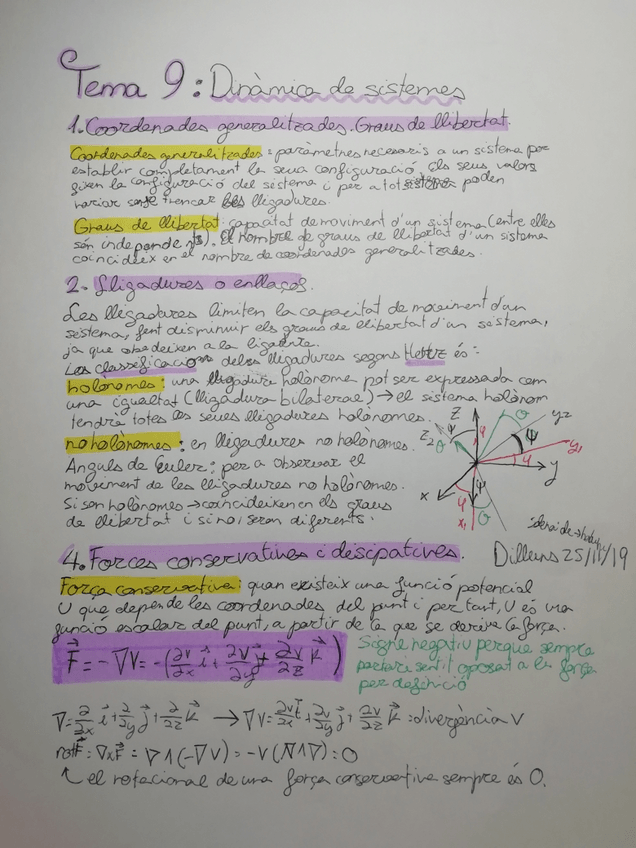 Tema 9: Dinàmica de sistemes
1. Coordenades generalitzades. Graus de llibertat.
Coordenades generalitzades: paràmetres necesaris a un sistema per
establir completament la seua configuració, els seus valors
fixen la configuració del sistema i per a tot sistema poden
variar sense trencar les lligadures.
Graus de llibertat: capacitat de moviment d'un sistema (entre elles
són independents). El nombre de graus de llibertat d'un sistema
coincideix en el nombre de coordenades generalitzades.
2. Lligadures o enllaços.
Les lligadures limiten la capacitat de moviment d'un
sistema, fent disminuir els graus de llibertat d'un sistema,
ja que obedeixen a la ligadura.
Les classificacions de les lligadures segons Hertz és:
holònomes: una lligadura holònoma pot ser expressada com
una igualtat (lligadura bilateral) → el sistema holònom
tendrà totes les seues lligadures holònomes.
no holònomes: en lligadures no holònomes.
Anguls de Euler: per a observar el
moviment de les lligadures no holònomes.
Si son holònomes → coincideixen en els graus
de llibertat i si no seran diferents.
z θ y2
z2 ψ φ ψ
θ y1
φ y
x φ ψ
x1 θ
Dilluns 25/11/19
4. Forces conservatives i disipatives.
Força conservativa: quan existeix una funció potencial
U que depende les coordenades del punt i per tant, U és una
funció escalar del punt, a partir de la que se deriva la força.
F⃗ = -∇V = -(∂V/∂x i⃗ + ∂V/∂y j⃗ + ∂V/∂z k⃗)
Signe negatiu perque sempre
portarà sentit oposat a la força
per definició
∇ = ∂/∂x i⃗ + ∂/∂y j⃗ + ∂/∂z k⃗ → ∇V = ∂V/∂x i⃗ + ∂V/∂y j⃗ + ∂V/∂z k⃗ : divergència V
rot F⃗ = ∇xF⃗ = ∇∧(-∇V) = -V(∇∧∇) = 0
↖ el rotacional de una força conservativa sempre és 0.